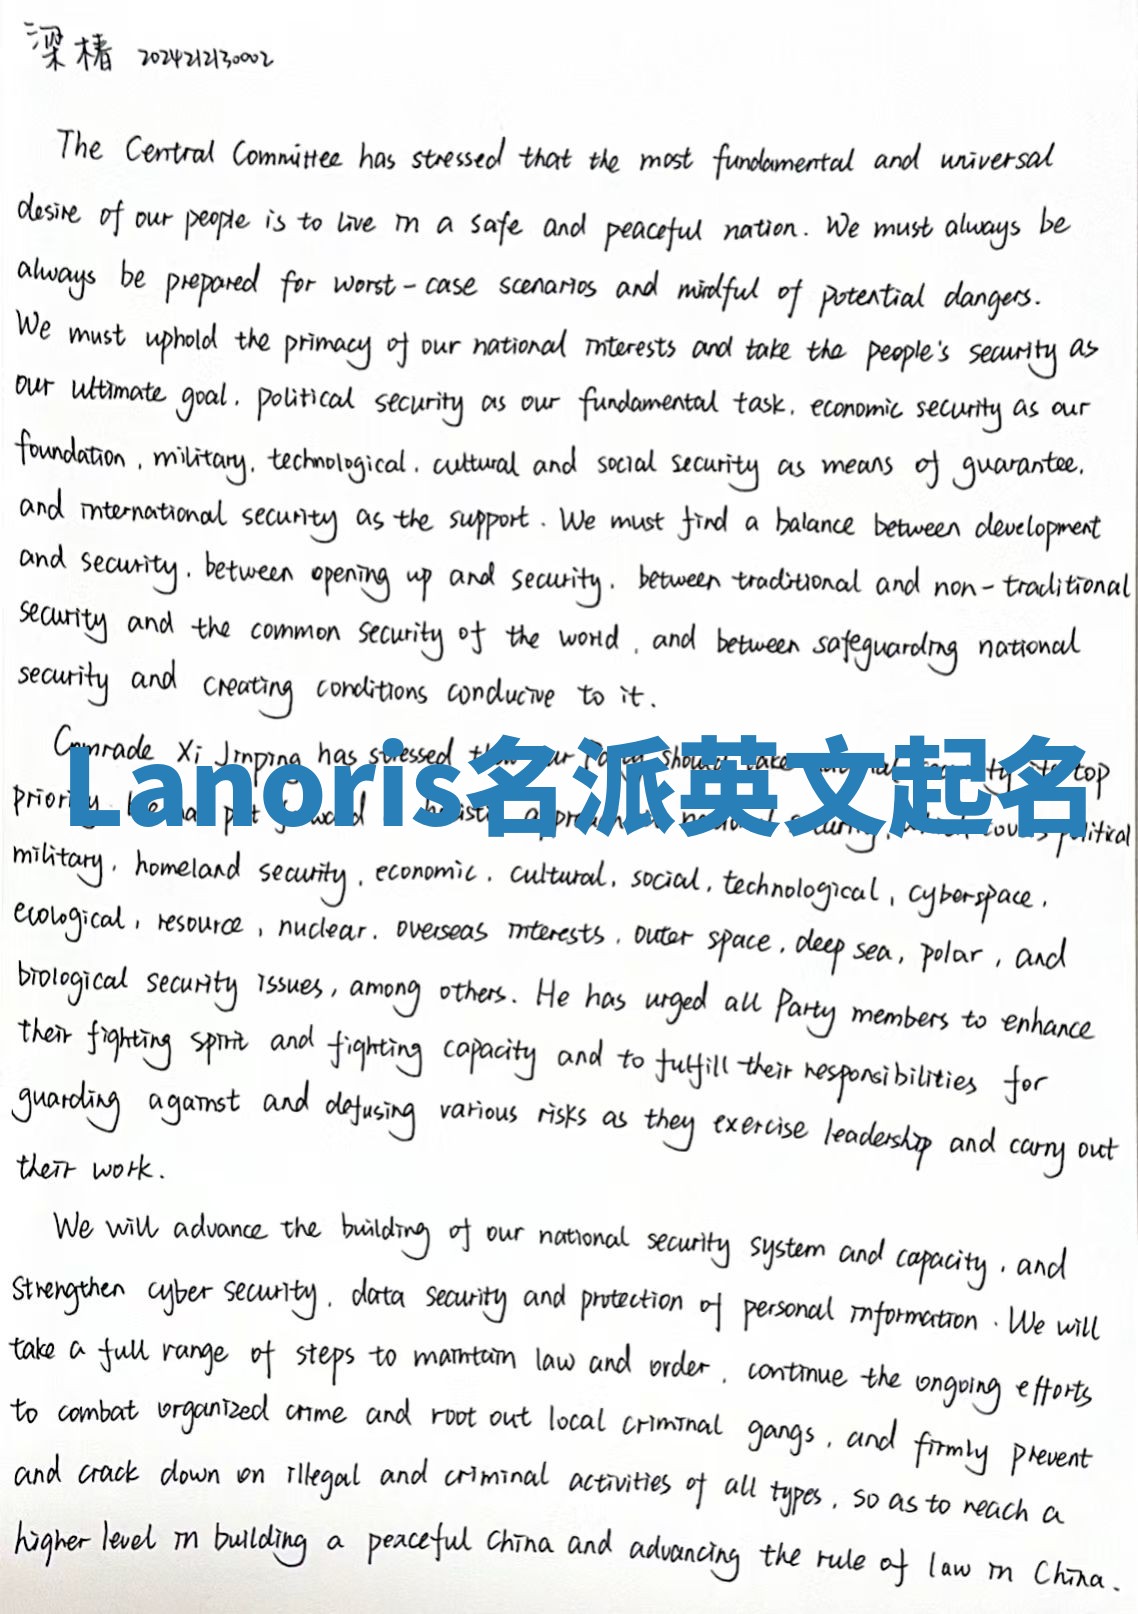 梁椿 2024212130002
The Central Committee has stressed that the most fundamental and universal
desire of our people is to live in a safe and peaceful nation. We must always be
always be prepared for worst-case scenarios and mindful of potential dangers.
We must uphold the primacy of our national interests and take the people's security as
our ultimate goal, political security as our fundamental task, economic security as our
foundation, military, technological, cultural and social security as means of guarantee,
and international security as the support. We must find a balance between development
and security, between opening up and security, between traditional and non-traditional
security and the common security of the world, and between safeguarding national
security and creating conditions conducive to it.
Comrade Xi Jinping has stressed should take top
Lanoris名派英文起名
political
military, homeland security, economic, cultural, social, technological, cyberspace,
ecological, resource, nuclear, overseas interests, outer space, deep sea, polar, and
biological security issues, among others. He has urged all Party members to enhance
their fighting spirit and fighting capacity and to fulfill their responsibilities for
guarding against and defusing various risks as they exercise leadership and carry out
their work.
We will advance the building of our national security system and capacity, and
strengthen cyber security, data security and protection of personal information. We will
take a full range of steps to maintain law and order, continue the ongoing efforts
to combat organized crime and root out local criminal gangs, and firmly prevent
and crack down on illegal and criminal activities of all types, so as to reach a
higher level in building a peaceful China and advancing the rule of law in China.